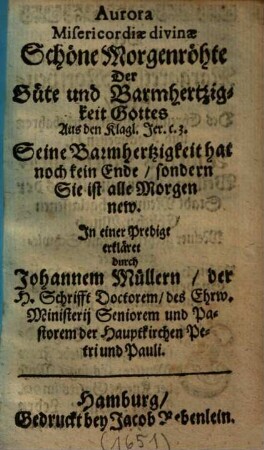 Aurora
Misericordiæ divinæ
Schöne Morgenröhte
Der
Güte und Barmhertzig-
keit Gottes
Aus den Klagl. Jer. c. 3.
Seine Barmhertzigkeit hat
noch kein Ende / sondern
Sie ist alle Morgen
new.
In einer Predigt
erkläret
durch
Johannem Müllern / der
H. Schrifft Doctorem / des Ehrw.
Ministerij Seniorem und Pa-
storem der Hauptkirchen Pe-
tri und Pauli.
Hamburg /
Gedruckt bey Jacob Rebenlein.
(1651)